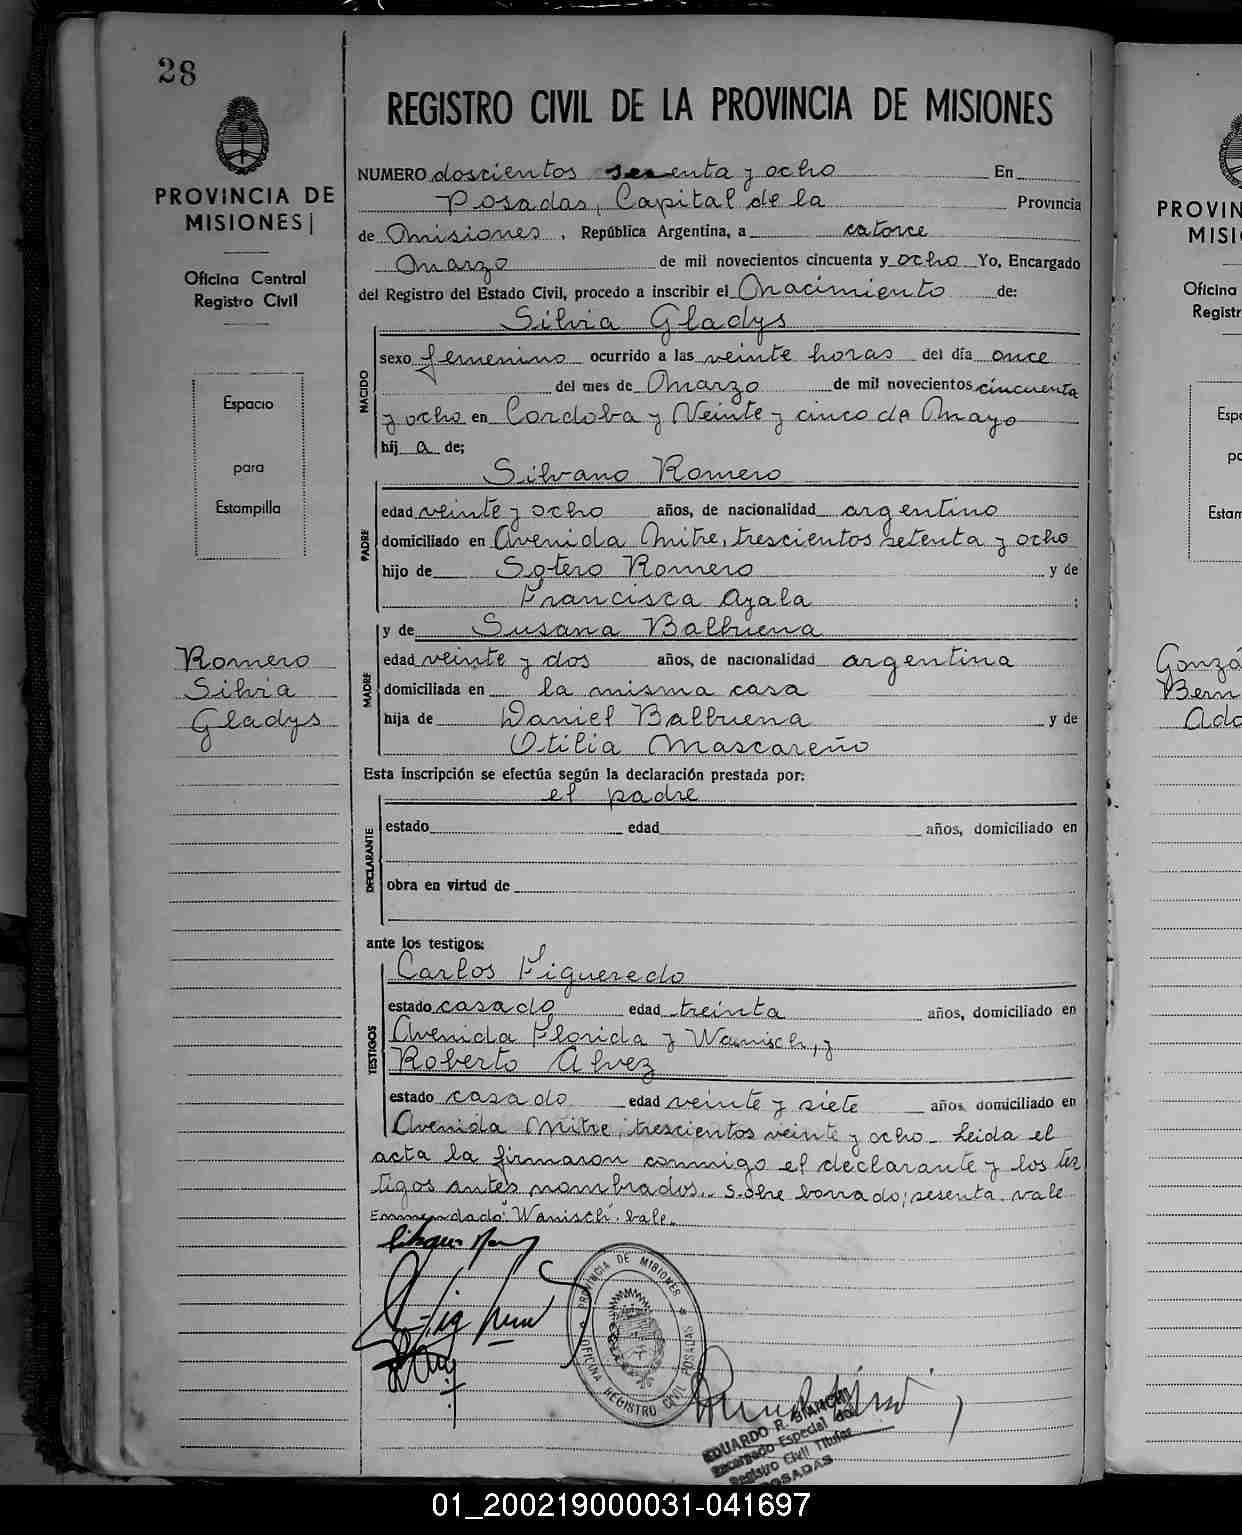 28
PROVINCIA DE
MISIONES
Oficina Central
Registro Civil
Espacio
para
Estampilla
Romero
Silvia
Gladys
REGISTRO CIVIL DE LA PROVINCIA DE MISIONES
NUMERO doscientos sesenta y ocho En
Posadas, Capital de la Provincia
de Misiones, República Argentina, a catorce
Marzo de mil novecientos cincuenta y ocho Yo, Encargado
del Registro del Estado Civil, procedo a inscribir el Nacimiento de:
Silvia Gladys
NACIDO
sexo femenino ocurrido a las veinte horas del día once
del mes de Marzo de mil novecientos cincuenta
y ocho en Cordoba y Veinte y cinco de Mayo
hij a de;
Silvano Romero
PADRE
edad veinte y ocho años, de nacionalidad argentino
domiciliado en Avenida Mitre, trescientos setenta y ocho
hijo de Sotero Romero y de
Francisca Ayala ;
y de Susana Balbuena
MADRE
edad veinte y dos años, de nacionalidad argentina
domiciliada en la misma casa
hija de Daniel Balbuena y de
Otilia Mascareño
Esta inscripción se efectúa según la declaración prestada por:
el padre
DECLARANTE
estado edad años, domiciliado en
obra en virtud de
ante los testigos:
Carlos Figueredo
TESTIGOS
estado casado edad treinta años, domiciliado en
Avenida Florida y Wanisch, y
Roberto Alvez
estado casado edad veinte y siete años, domiciliado en
Avenida Mitre, trescientos veinte y ocho_ Leida el
acta la firmaron conmigo el declarante y los tes
tigos antes nombrados.. Sobre borrado; sesenta. vale
Enmendado: "Wanisch". Vale.
PROVINCIA DE MISIONES
OFICINA REGISTRO CIVIL POSADAS
EDUARDO R. BIANCHI
Encargado Especial del
Registro Civil Titular
POSADAS
PROVIN
MISI
Oficina
Registr
Espa
pa
Estam
Gonzá
Bern
Ado
01_200219000031-041697